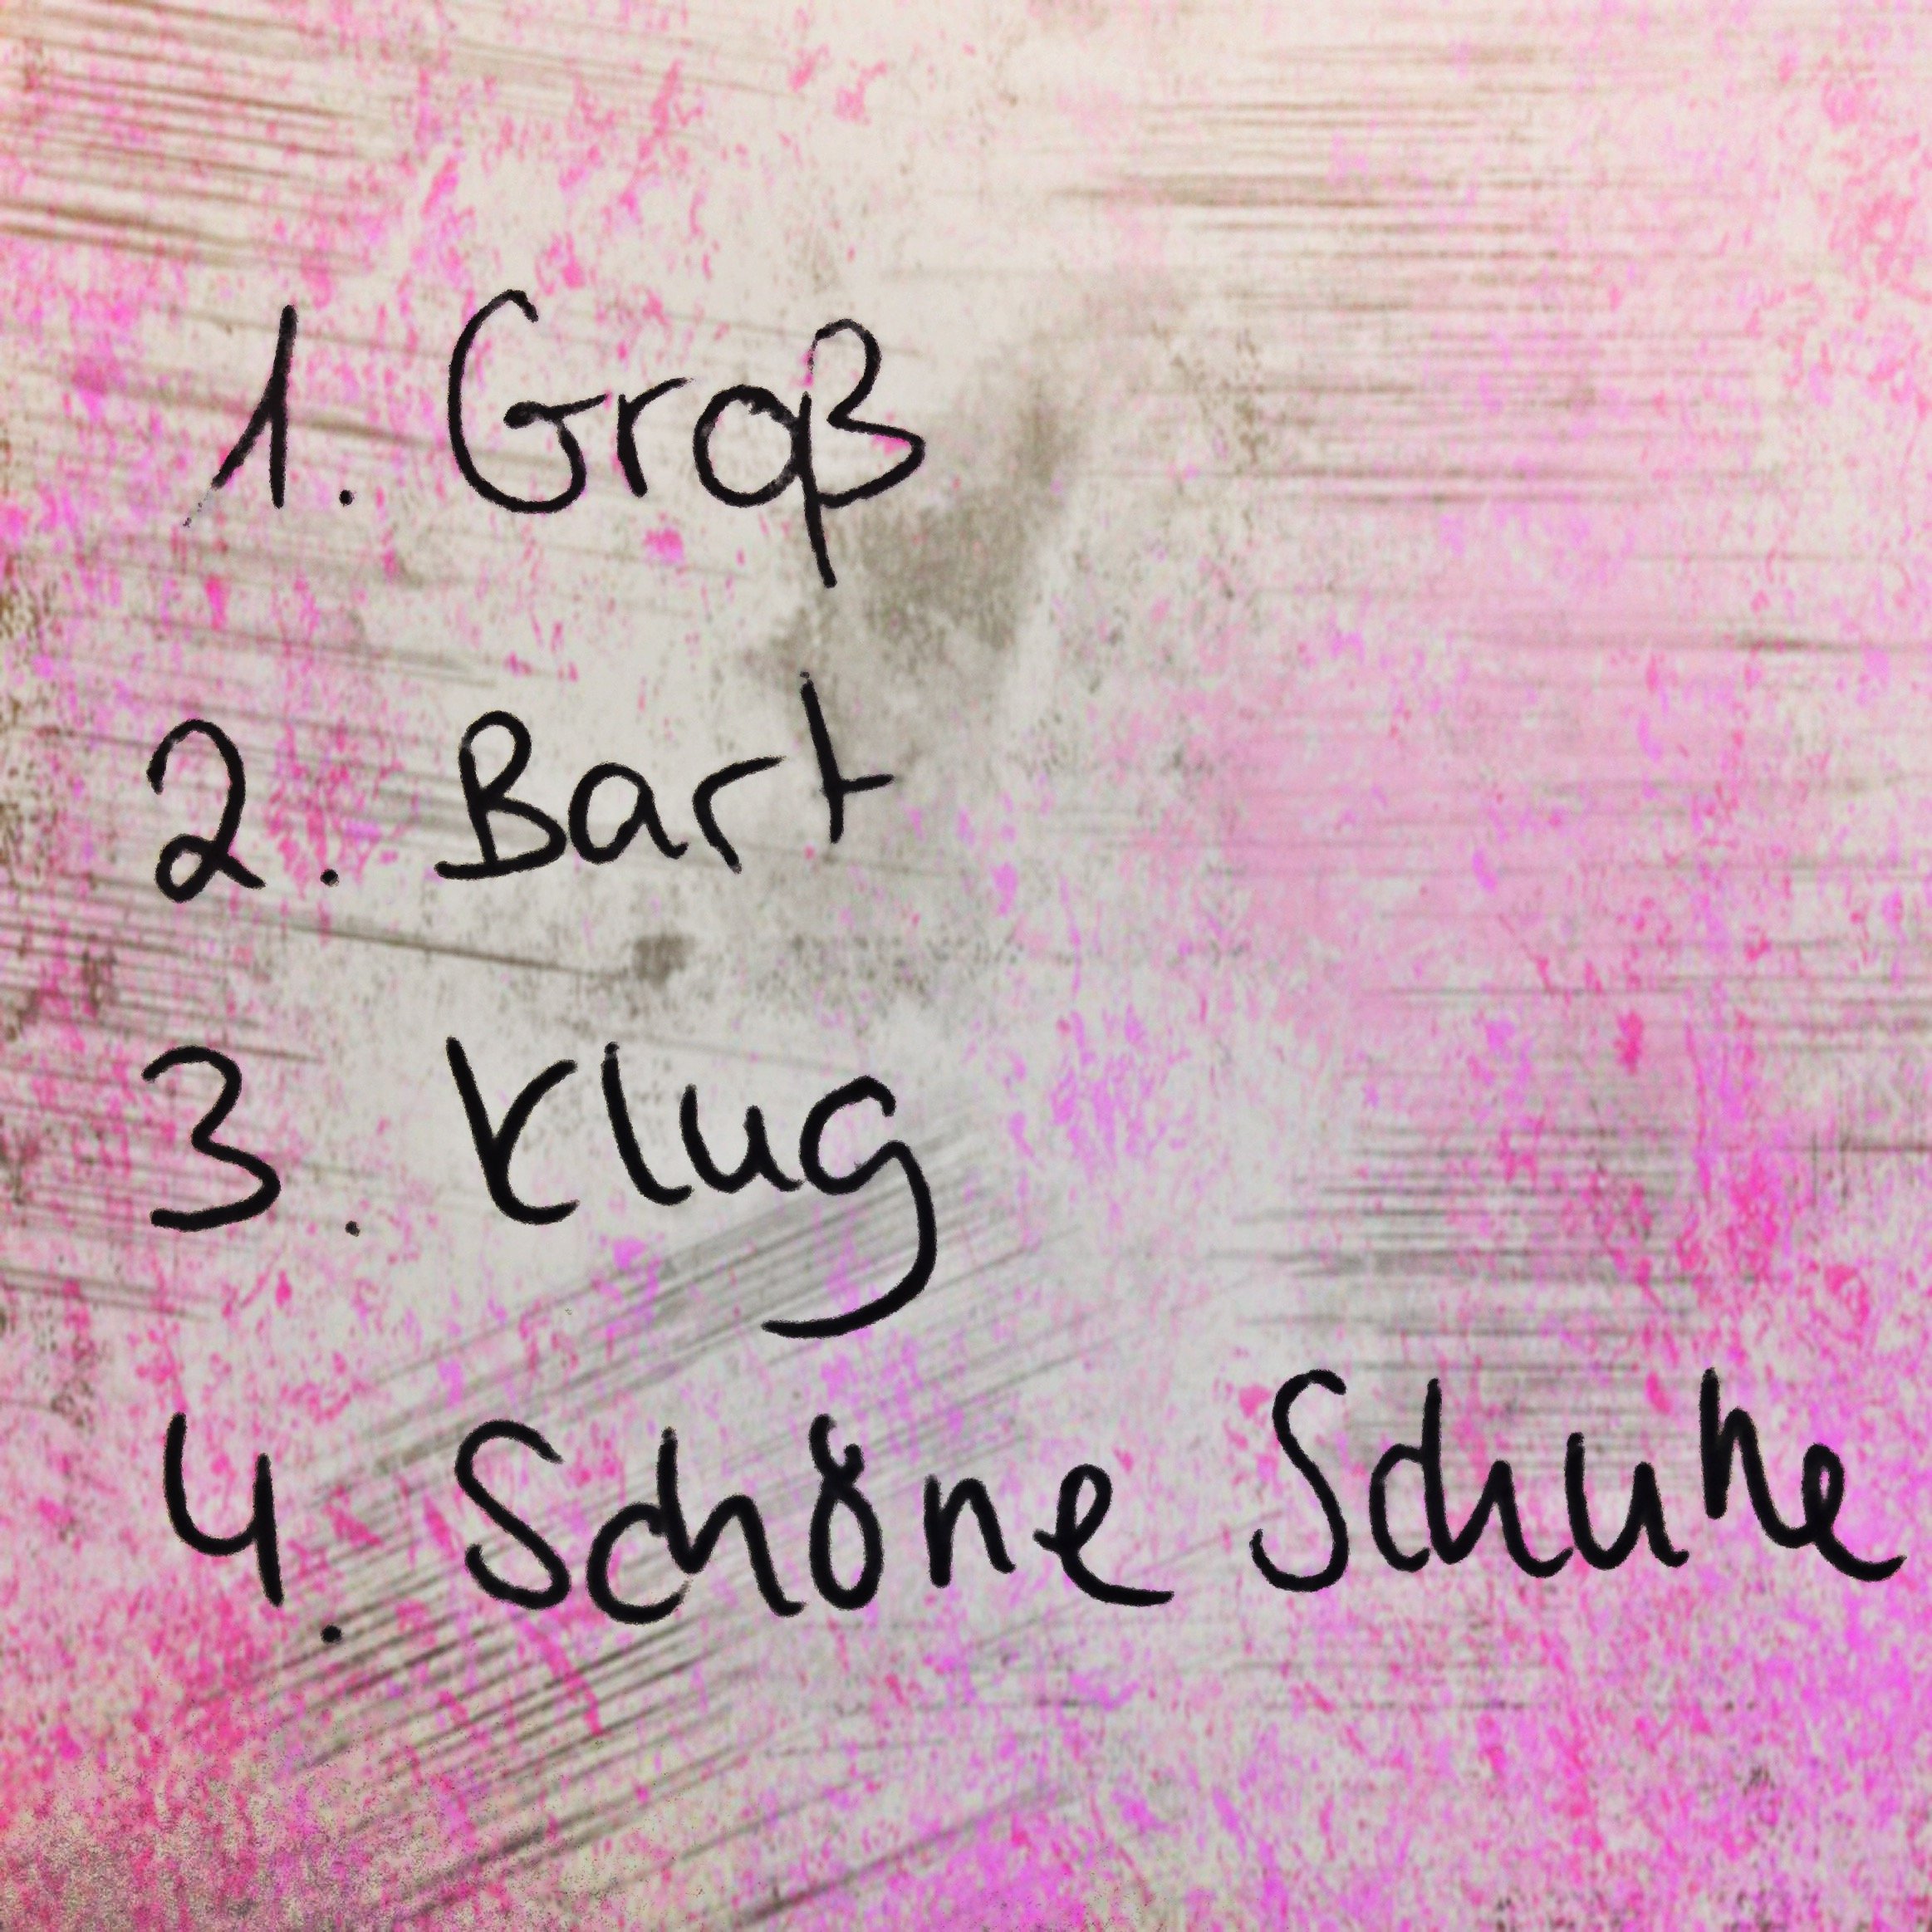 1. Groß
2. Bart
3. Klug
4. Schöne Schuhe